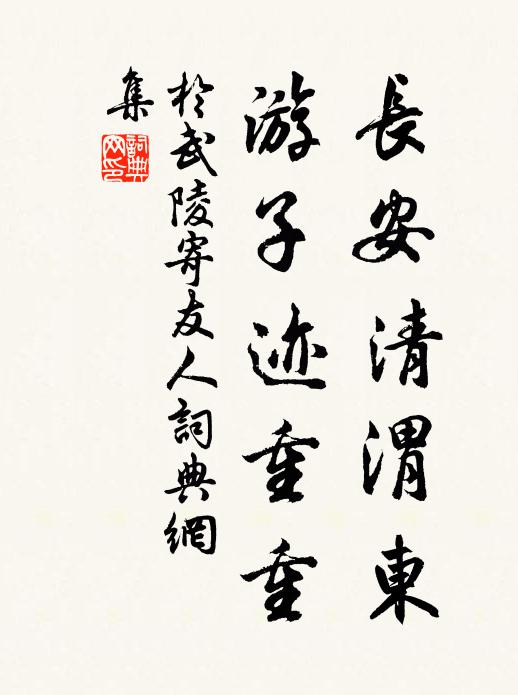 長安清渭東
游子迹重重
於武陵寄友人詞典網
集
詞典
网印